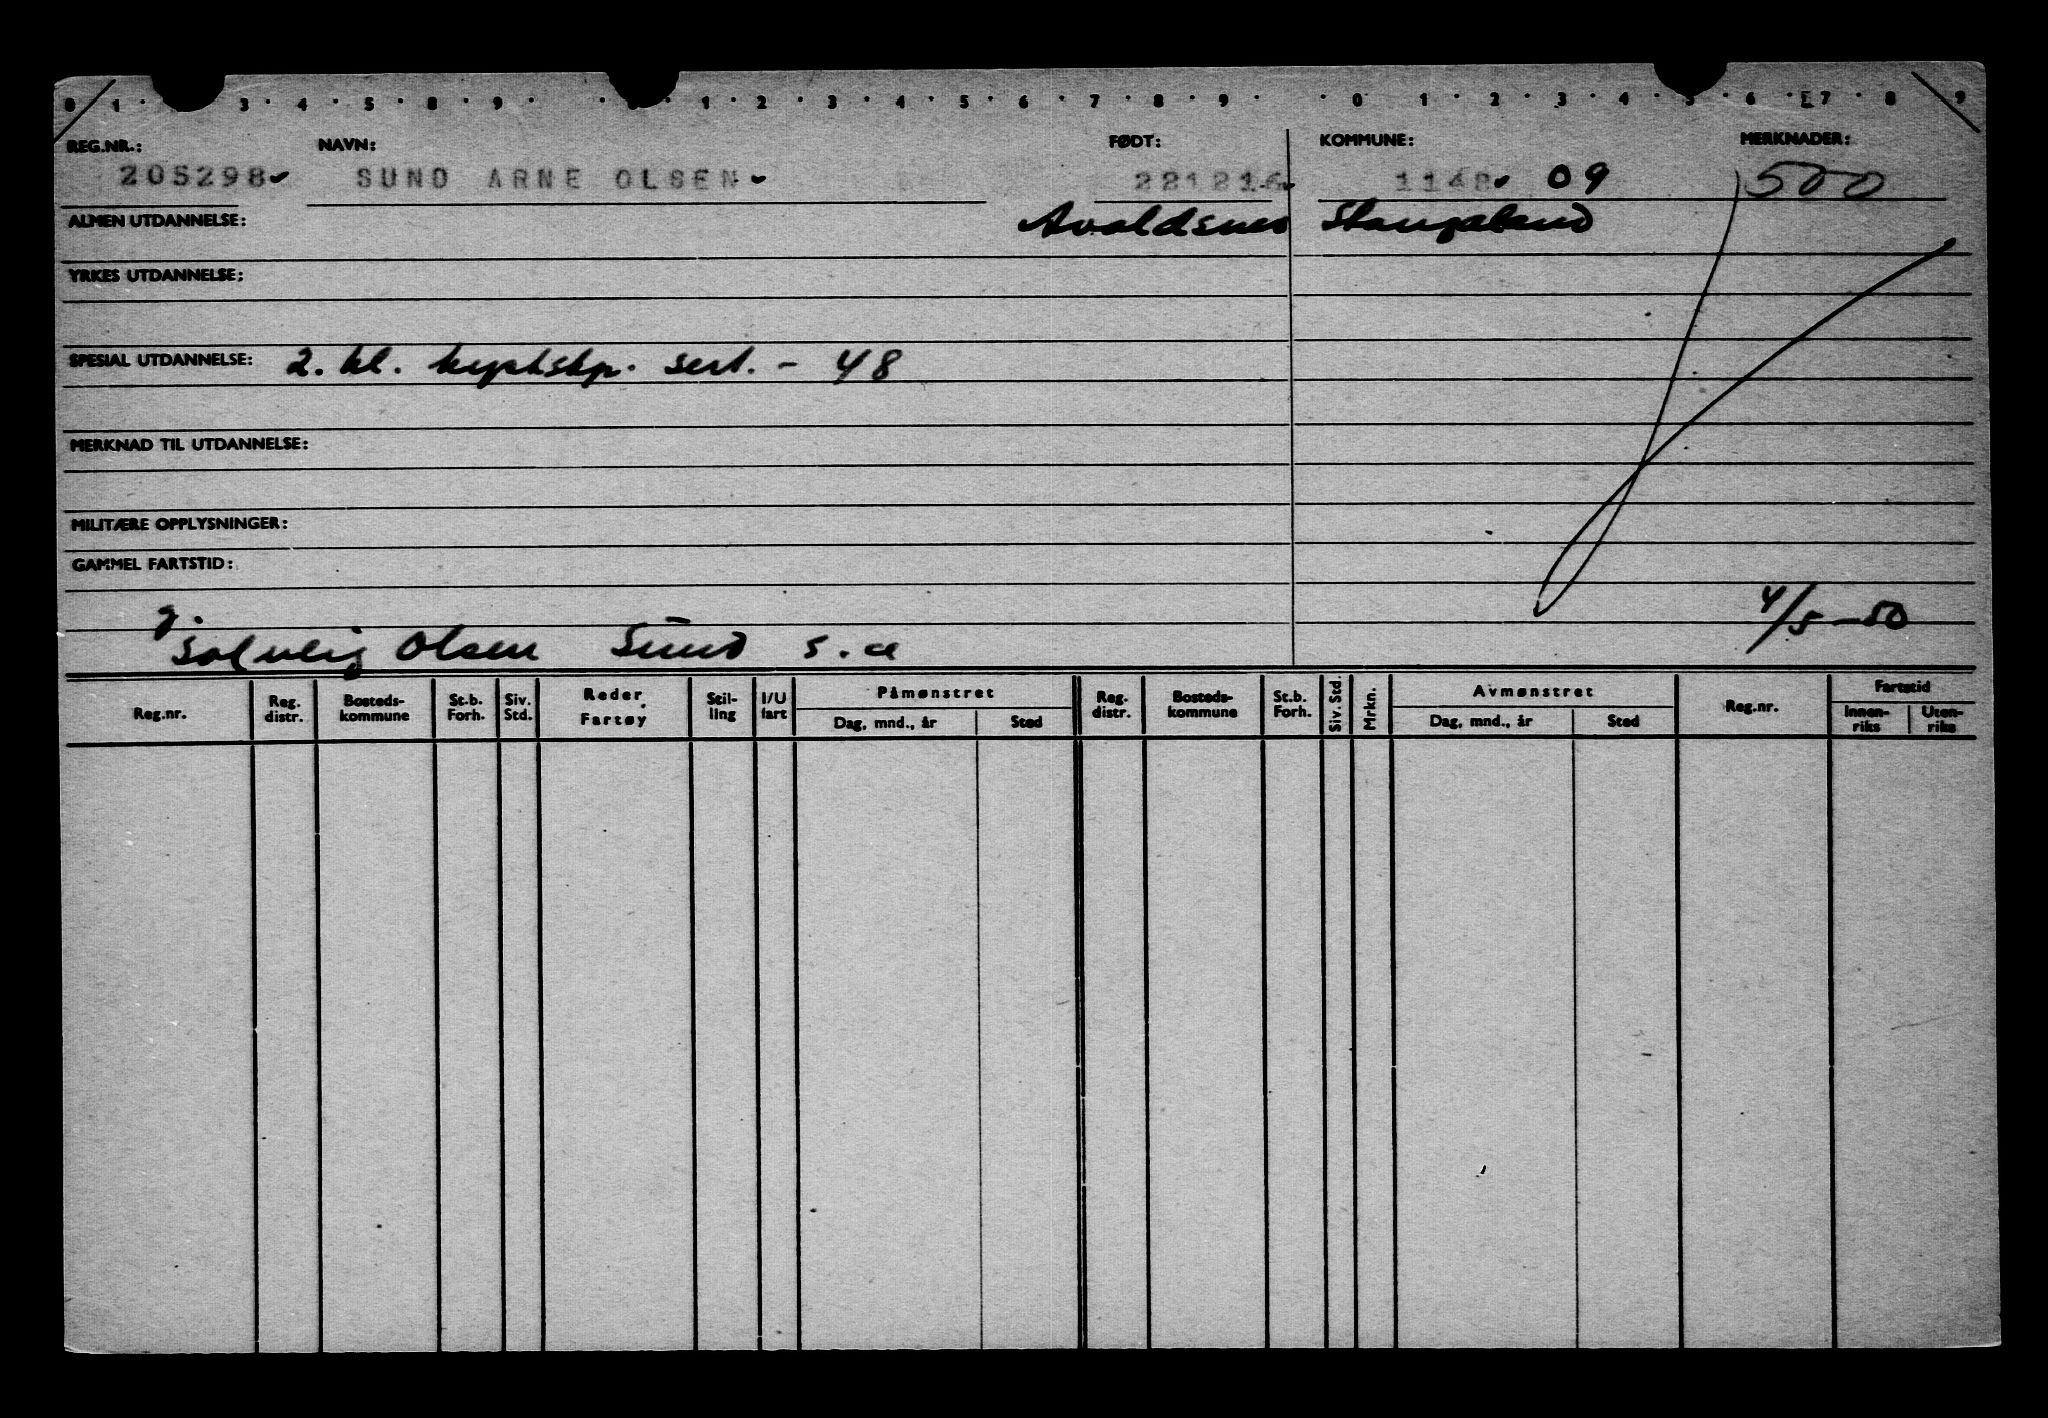 0 1 · 3 · 4 · 5 · 8 · 9 · · 1 · 2 · 3 · 4 · 5 · 6 · 7 · 8 · 9 · · 0 1 · 2 · 3 · 4 · 5 · 6 · 7 · 8 9
REG.NR.: NAVN: FØDT: KOMMUNE: MERKNADER:
205298 SUND ARNE OLSEN 221216 1148 09 500
ALMEN UTDANNELSE: Avaldsnes Stangaland
YRKES UTDANNELSE:
SPESIAL UTDANNELSE: 2. kl. kystskp. sert. - 48
MERKNAD TIL UTDANNELSE:
MILITÆRE OPPLYSNINGER:
GAMMEL FARTSTID:
4/5-50
g. Solveig Olsen Sund s.a
Reg.nr. Reg. distr. Bosteds-kommune St.b. Forh. Siv. Std. Reder Fartøy Stil-ling I/U fart Påmønstret Dag, mnd., år Sted Reg. distr. Bosteds-kommune St.b. Forh. Siv. Std. Mrkn. Avmønstret Dag, mnd., år Sted Reg.nr. Fartstid Innen-riks Uten-riks